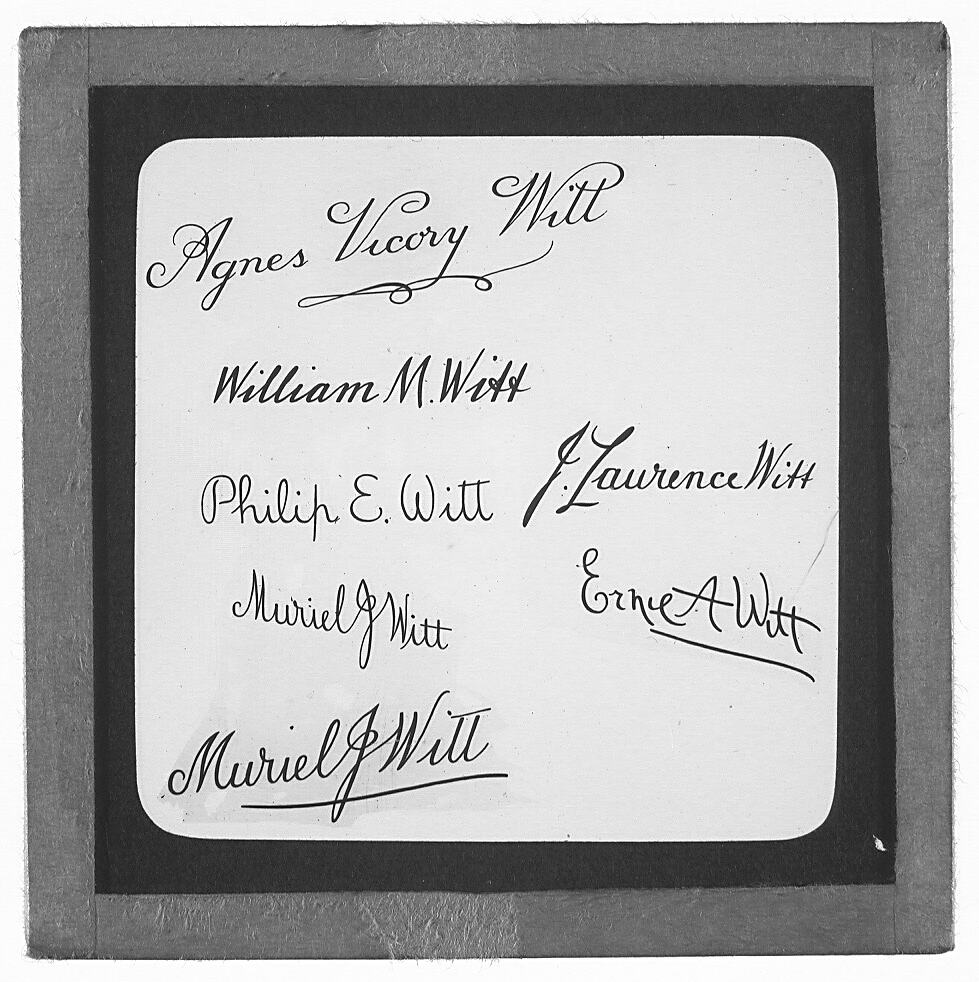 Agnes Vicory Witt
William M. Witt
J. Laurence Witt
Philip E. Witt
Ernie A Witt
Muriel J Witt
Muriel J Witt